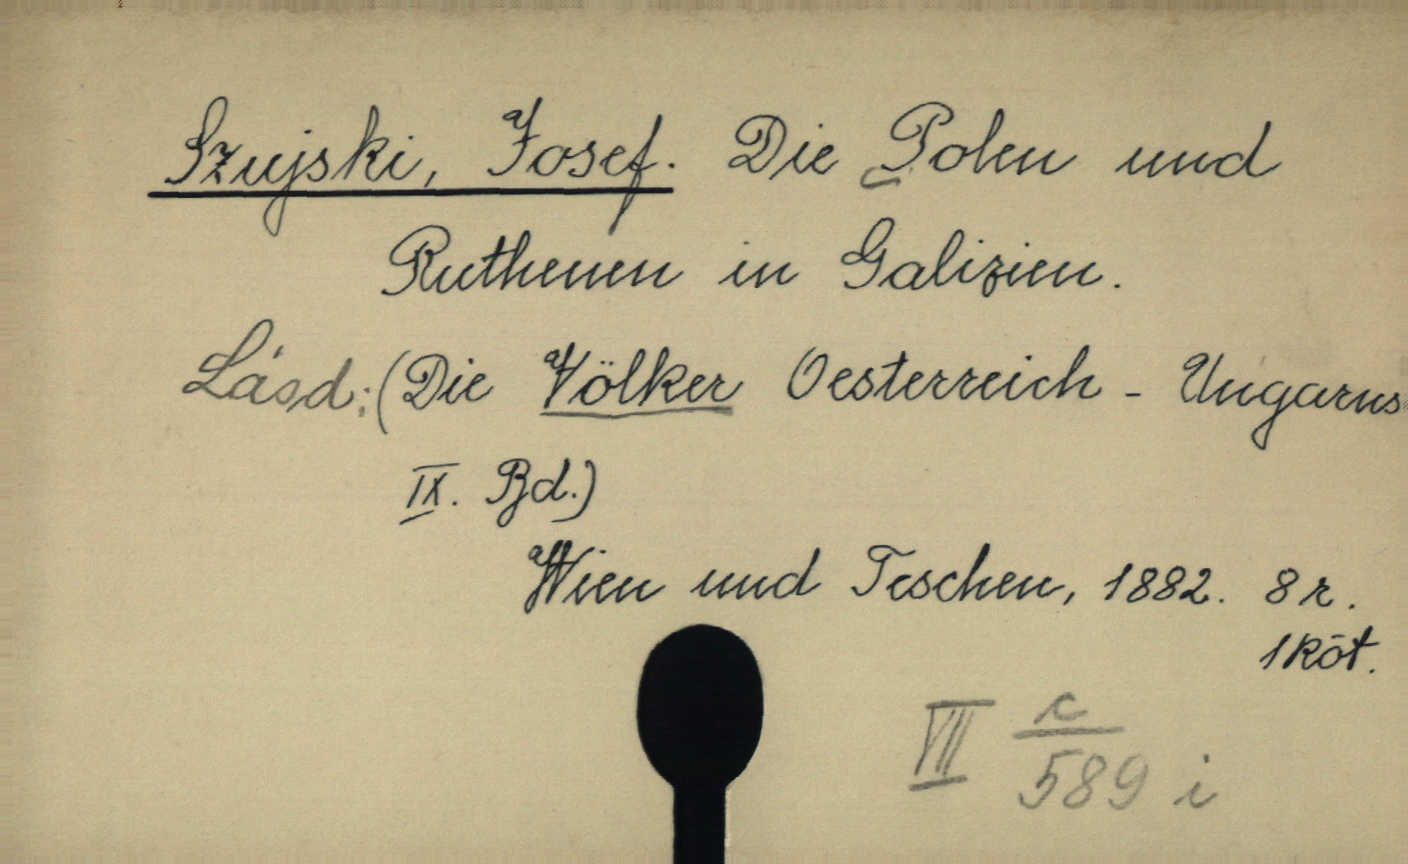 Szujski, Josef. Die Polen und
Ruthenen in Galizien.
Lásd: (Die Völker Oesterreich - Ungarns
IX. Bd.)
Wien und Teschen, 1882. 8 r.
1 köt.
VII c/589 i